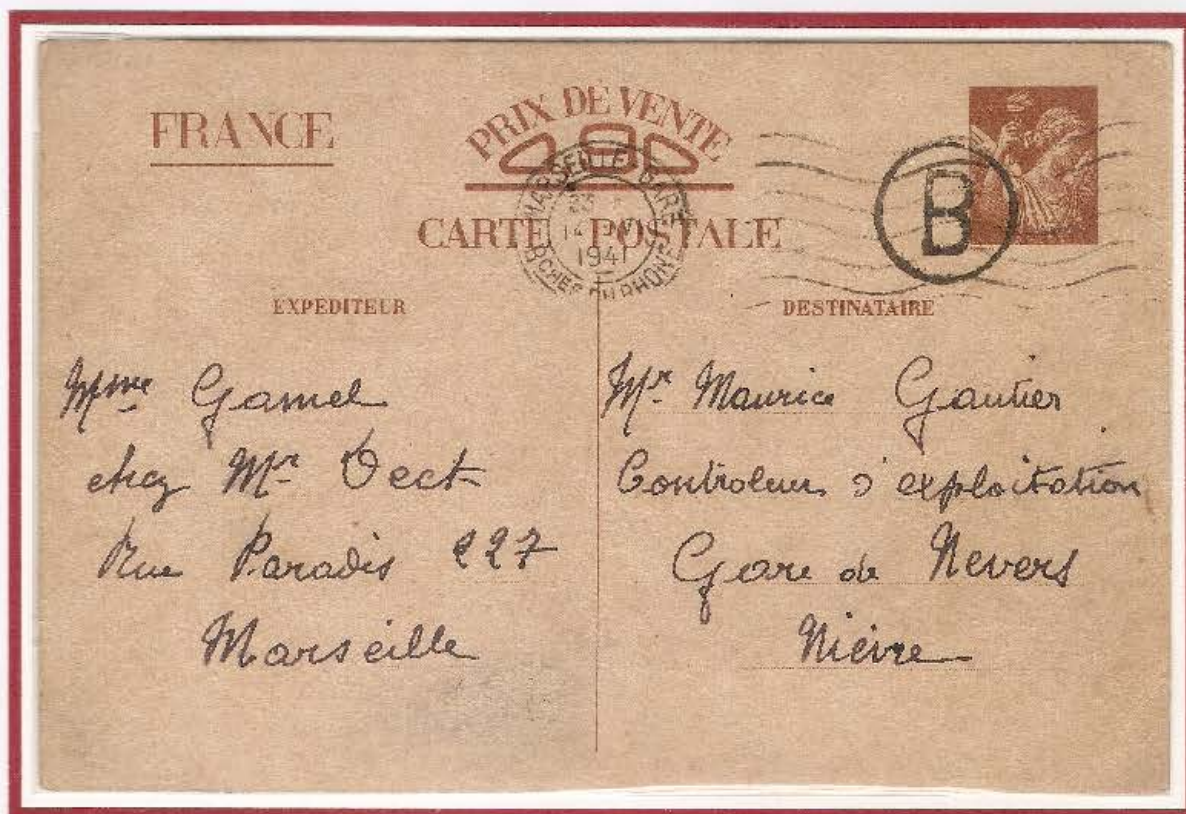 FRANCE
PRIX DE VENTE
0.90
CARTE POSTALE
MARSEILLE GARE
1941
BCHES DU RHONE
B
EXPEDITEUR
DESTINATAIRE
Mme Gamel
chez Mr
Rue Paradis 227
Marseille
Mr. Maurice Gautier
Controleur d'exploitation
Gare de Nevers
Nièvre